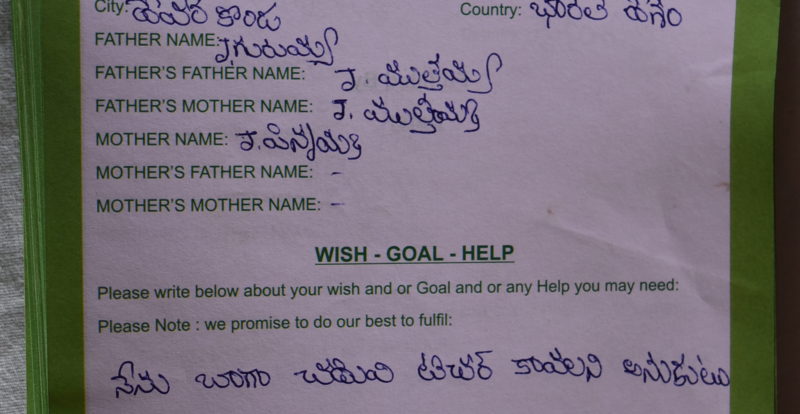 City: దేవర కొండ Country: భారత దేశం
FATHER NAME: J గురుయ్య
FATHER'S FATHER NAME: J. ముత్తయ్య
FATHER'S MOTHER NAME: J. ముత్తమ్మ
MOTHER NAME: J. పిన్నమ్మ
MOTHER'S FATHER NAME: -
MOTHER'S MOTHER NAME: -
WISH - GOAL - HELP
Please write below about your wish and or Goal and or any Help you may need:
Please Note : we promise to do our best to fulfil:
నేను బాగా చదువి టిచర్ కావలని అనుకుటు